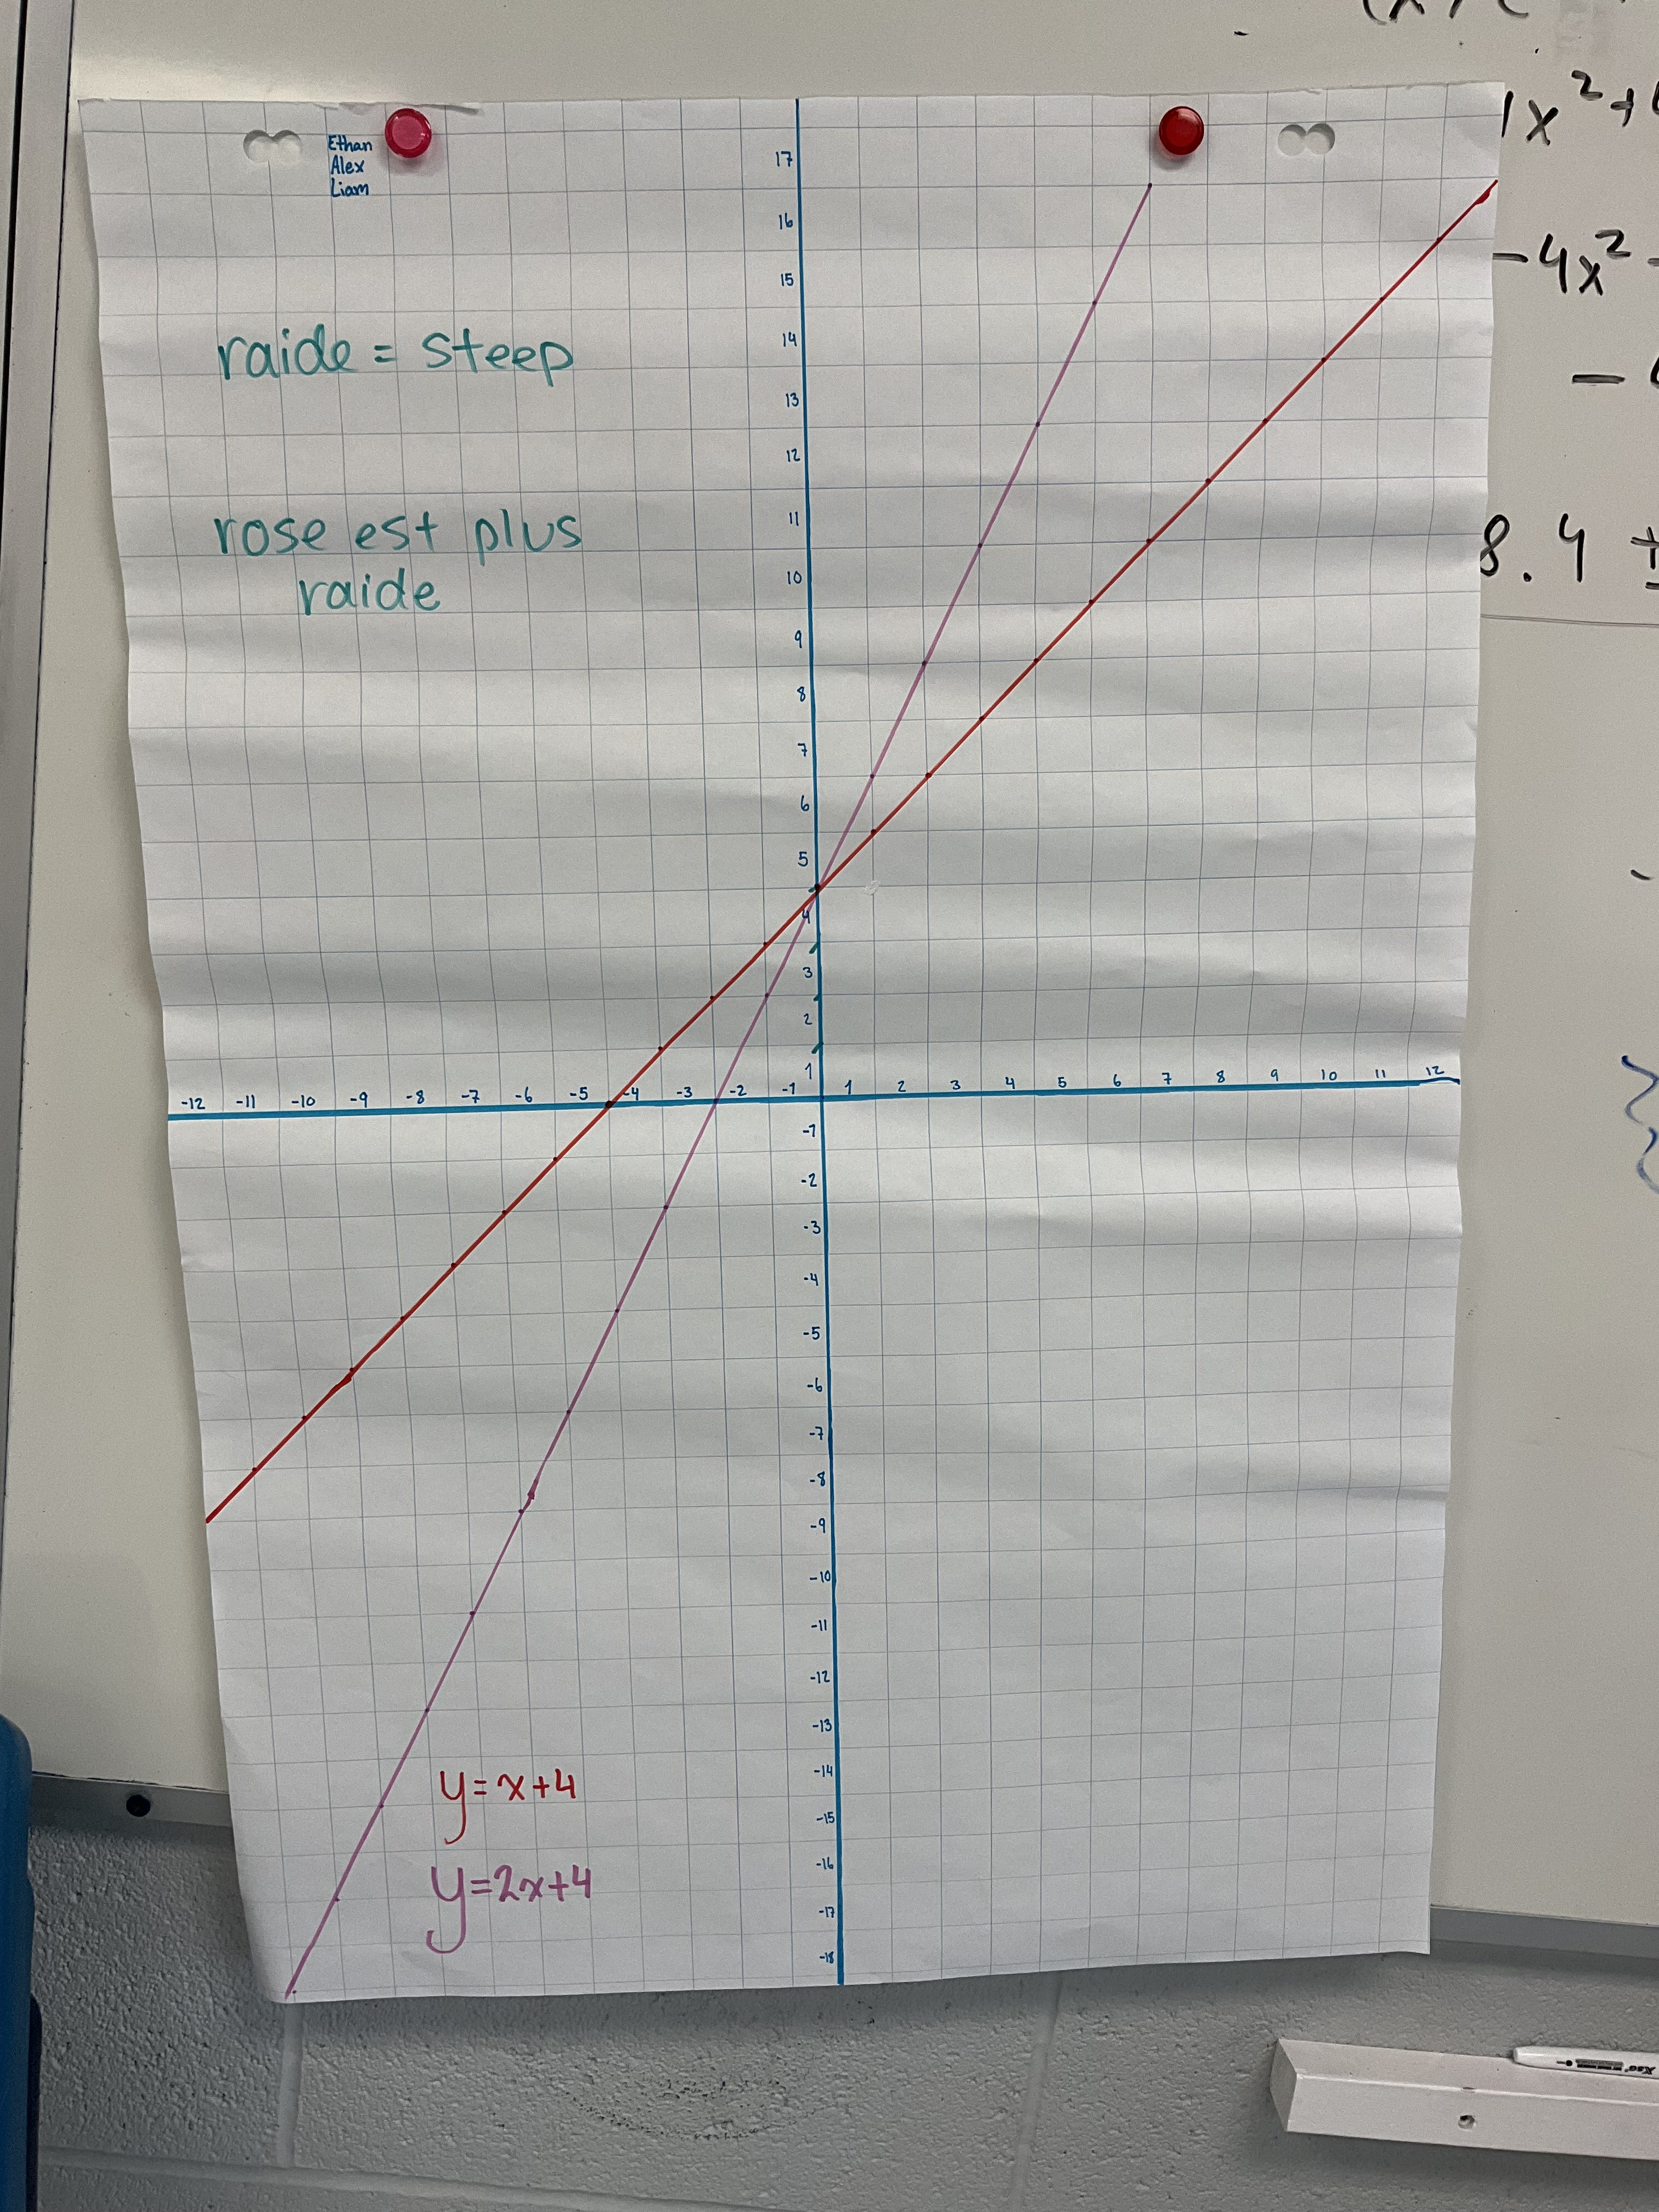 Ethan
Alex
Liam
raide = steep
rose est plus
raide
17
16
15
14
13
12
11
10
9
8
7
6
5
4
3
2
1
-12 -11 -10 -9 -8 -7 -6 -5 -4 -3 -2 -1 1 2 3 4 5 6 7 8 9 10 11 12
-1
-2
-3
-4
-5
-6
-7
-8
-9
-10
-11
-12
-13
-14
-15
-16
-17
-18
y=x+4
y=2x+4
1x²+
-4x²-
-
8.4 ±